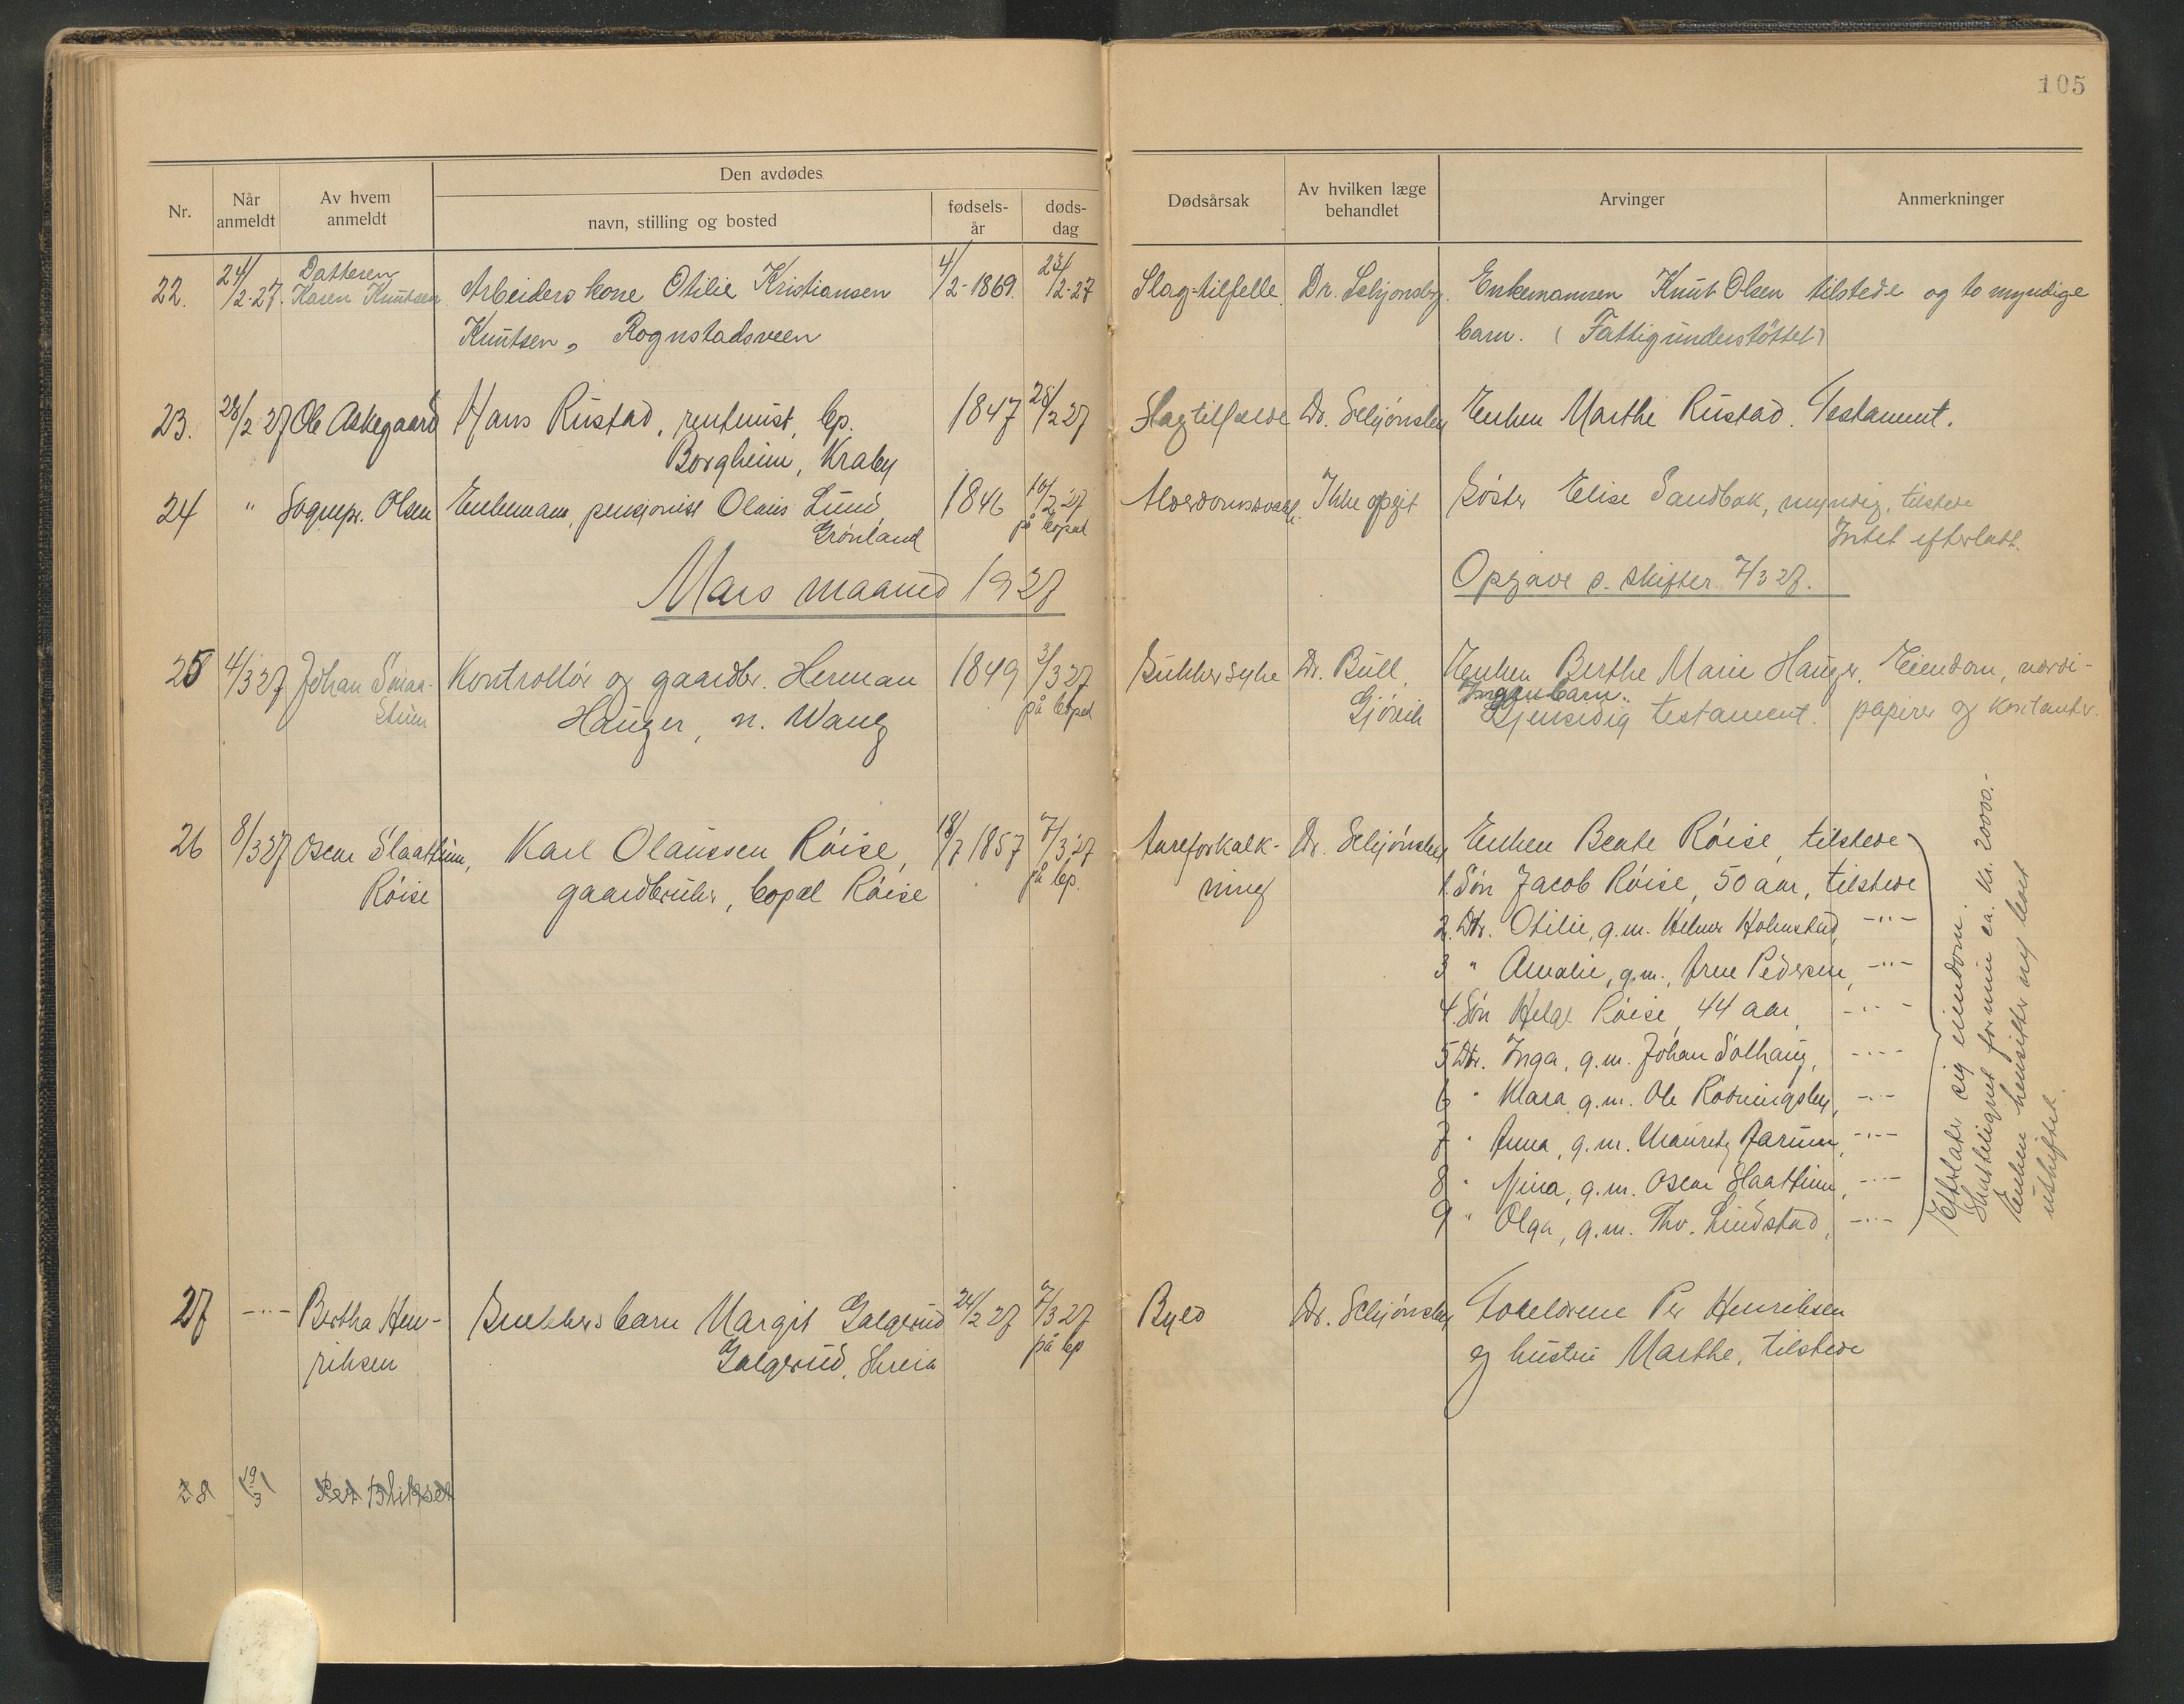 105
Den avdødes
Nr.
Når anmeldt
Av hvem anmeldt
navn, stilling og bosted
fødsels-år
døds-dag
Dødsårsak
Av hvilken læge behandlet
Arvinger
Anmerkninger
22. 24/2-27. Datteren Karen Knutsen Arbeiders kone Otilie Kristiansen 4/2-1869. 23/2-27 Slag-tilfelle. Dr. Selijonsby. Enkemannen Knut Olsen tilstede og to myndige
Knutsen, Rognstadsveen barn. (Fattigunderstöttet)
23. 28/2 27 Ole Askegaard Hans Rustad, rentenist, bp. 1847 28/2 27 Slagtilfælde Dr. Selijónsby Enken Marthe Rustad. Testament.
Borgheim, Kraby
24 " Sognepr. Olsen Enkemann, pensjonist Olaus Lund 1846 10/2 27 Alderdomssvakh. Ikke opgit Søster Elise Sandbak, myndig, tilstede
Grönland på bopæl Intet efterlatt.
Mars maaned 1927 Opgave o. skifter 7/3 27.
25 4/3 27 Johan Smaa- Kontrollör og gaardbr. Herman 1849 3/3 27 Sukkersyke Dr. Bull, Enken Berthe Marie Hauger, Eiendom, verdi-
stuen Hauger, n. Wang på bopæl Gjövik Ingen barn. Gjensidig testament. papirer og kontanter.
26 8/3 27 Oscar Slaattum, Karl Olaussen Röise, 18/7 1857 7/3 27 Aareforkalk- Dr. Selijónsby Enken Beate Röise, tilstede
Röise gaardbruker, bopæl Röise på bp. ning 1. Sön Jacob Röise, 50 aar, tilstede
2. Dtr. Otilie, g.m. Helmer Holmstad, -"-
3 " Amalie, g.m. Arne Pedersen, -"-
4. Sön Helge Röise, 44 aar, -"-
5 Dtr. Inga, g.m. Johan Solhaug, -"-
6 " Klara, g.m. Ole Rödningsby, -"-
7 " Anna, g.m. Mauritz Farum, -"-
8 " Mina, g.m. Oscar Slaattum, -"-
9 " Olga, g.m. Thv. Lindstad, -"-
Efterlater sig eiendom.
Skattelignet formue ca. kr. 20000.-
Enken hensitter uskiftet
27 -"- Bertha Hen- Brukers barn Margit Galgerud 24/2 27 7/3 27 Byld Dr. Selijónsby Foreldrene Per Henriksen
riksen Galgerud, Skreia på bp og hustru Marthe, tilstede
28 19/3